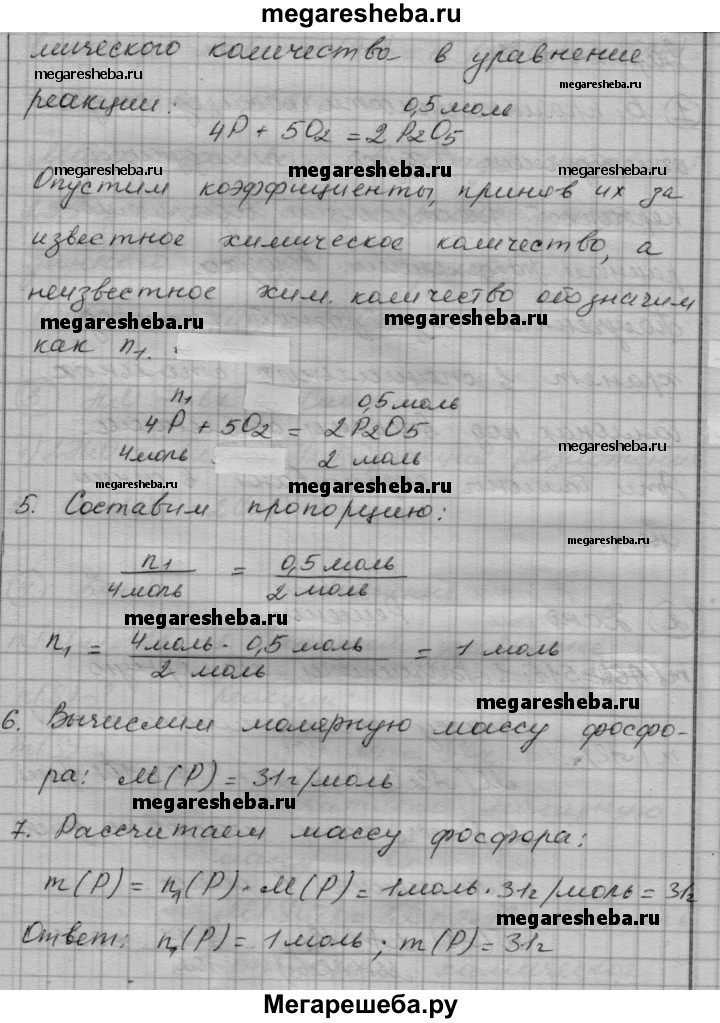 megaresheba.ru
мического количество в уравнение
megaresheba.ru megaresheba.ru
реакции: 0,5 моль
4P + 5O2 = 2P2O5
megaresheba.ru megaresheba.ru
Опустим коэффициенты, приняв их за
известное химическое количество, а
неизвестное хим. количество обозначим
megaresheba.ru megaresheba.ru
как n1.
n1 0,5 моль
4P + 5O2 = 2P2O5
megaresheba.ru
4 моль 2 моль
megaresheba.ru
5. Составим пропорцию:
megaresheba.ru
n1 / 4 моль = 0,5 моль / 2 моль
megaresheba.ru
n1 = 4 моль · 0,5 моль / 2 моль = 1 моль
megaresheba.ru
6. Вычислим молярную массу фосфо-
ра: M(P) = 31г/моль
megaresheba.ru
7. Рассчитаем массу фосфора:
m(P) = n1(P) · M(P) = 1 моль · 31г/моль = 31г
megaresheba.ru
Ответ: n1(P) = 1 моль; m(P) = 31г
Мегарешеба.ру